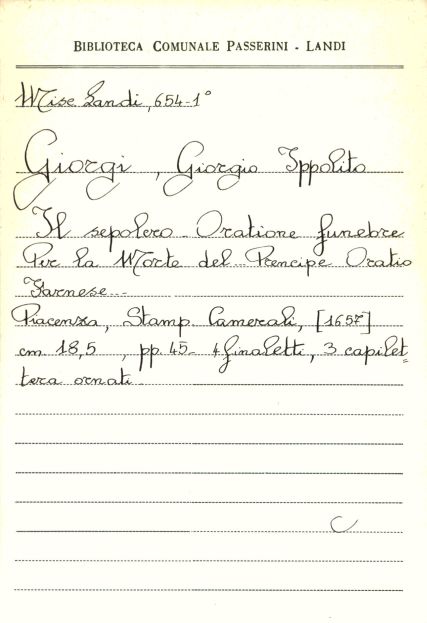 BIBLIOTECA COMUNALE PASSERINI - LANDI
Misc. Landi, 654-1°
Giorgi, Giorgio Ippolito
Il sepolcro - Oratione funebre
Per la Morte del Prencipe Oratio
Farnese -
Piacenza, Stamp. Camerali, [1657]
cm 18,5, pp. 45 - 4 finaletti, 3 capilet=
tera ornati
C